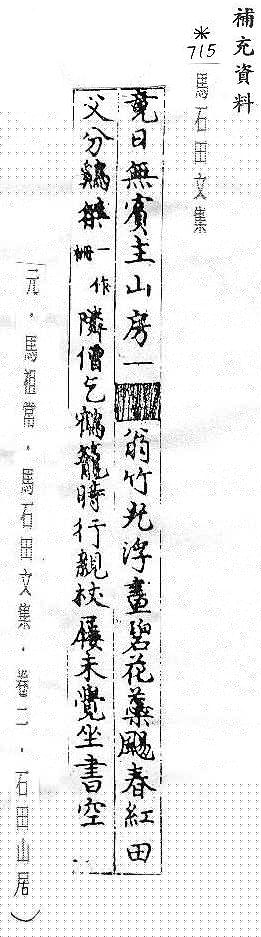 補充資料
*715
馬石田文集
竟日無賓主山房一翁竹光浮畫碧花藥颺春紅田
父分鷄雛一作柵隣僧乞鶴籠時行親杖屨未覺坐書空
元．馬祖常．馬石田文集．卷二．石田山居）